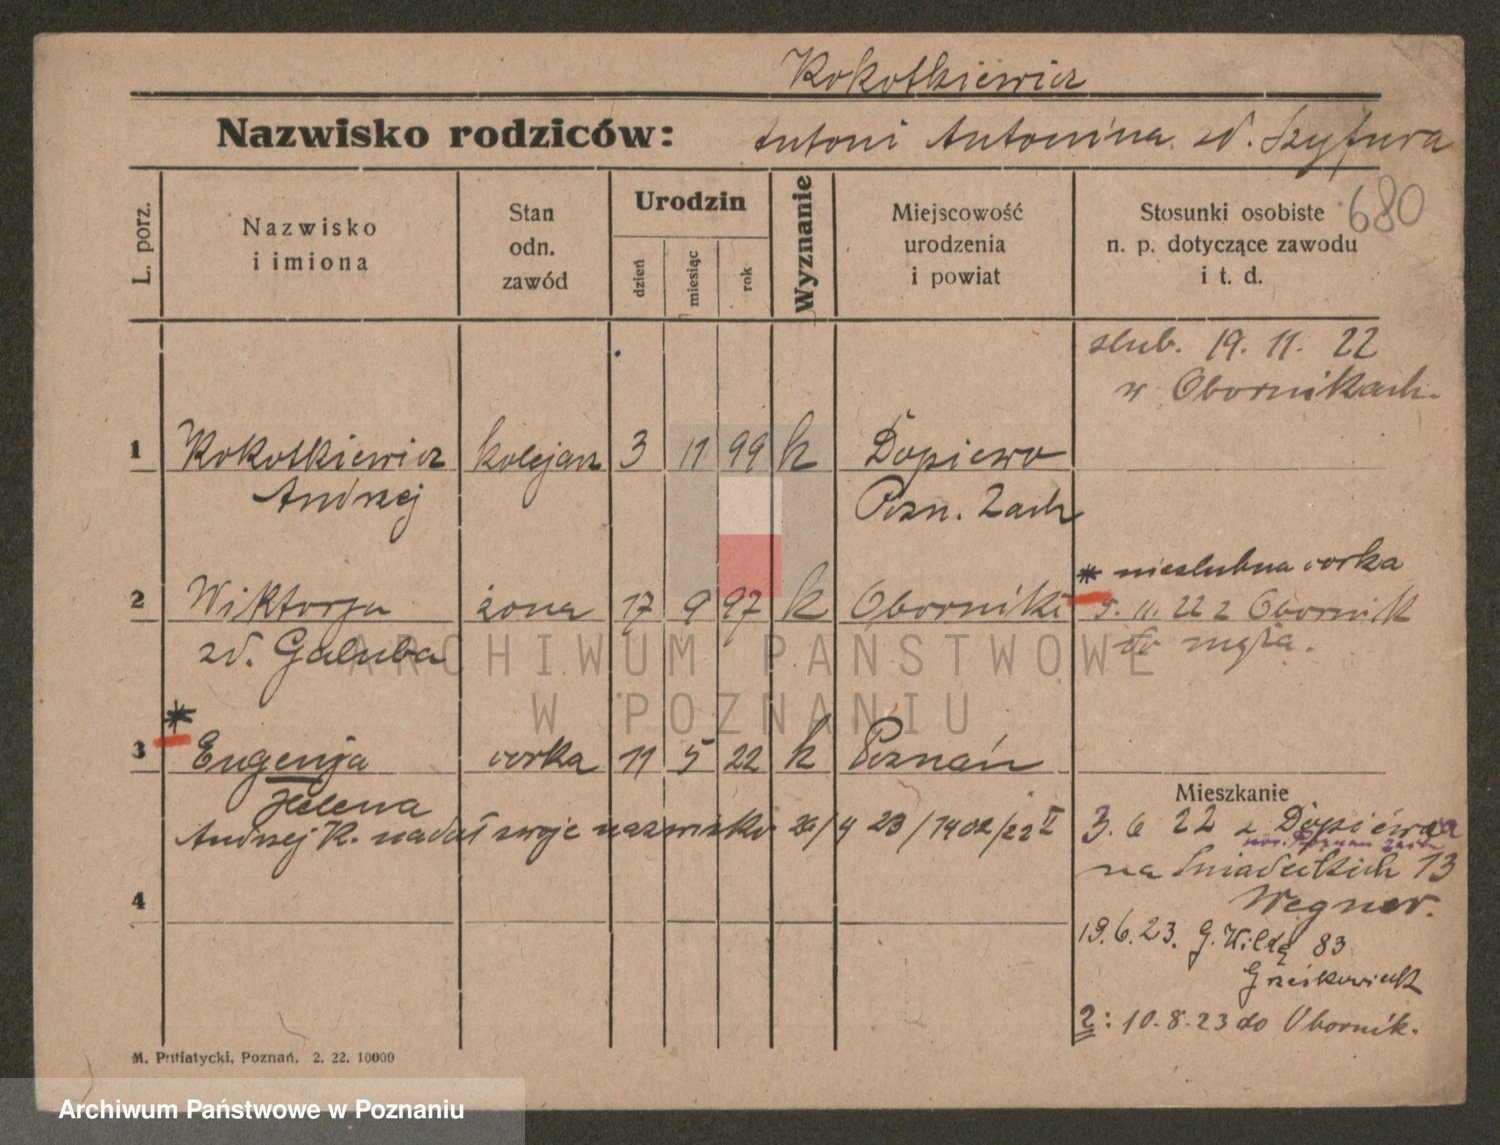 Kokotkiewicz
Nazwisko rodziców: Antoni Antonina zd. Szyfura
680
L. porz.
Nazwisko
i imiona
Stan
odn.
zawód
Urodzin
dzień
miesiąc
rok
Wyznanie
Miejscowość
urodzenia
i powiat
Stosunki osobiste
n. p. dotyczące zawodu
i t. d.
slub. 19. 11. 22
w Obornikach.
1 Kokotkiewicz kolejarz 3 11 99 k Dopiewo
Andrzej Pozn. Zach
* nieslubna corka
2 Wiktorja żona 17 9 97 k Oborniki 5. 11. 22 z Obornik
zd. Galuba do męża.
*
3 Eugenja corka 11 5 22 k Poznań
Helena
Mieszkanie
Andrzej K. nadał swoje nazwisko 26/4 23/1402/22 II
3. 6 22 z Dopiewa
pow. Poznan zach
na Sniadeckich 13
Wegner.
4
19. 6. 23. G. Wildą 83
Grześkowiack
2: 10. 8. 23 do Obornik.
M. Putiatycki, Poznań. 2. 22. 10000
ARCHIWUM PAŃSTWOWE
W POZNANIU
Archiwum Państwowe w Poznaniu